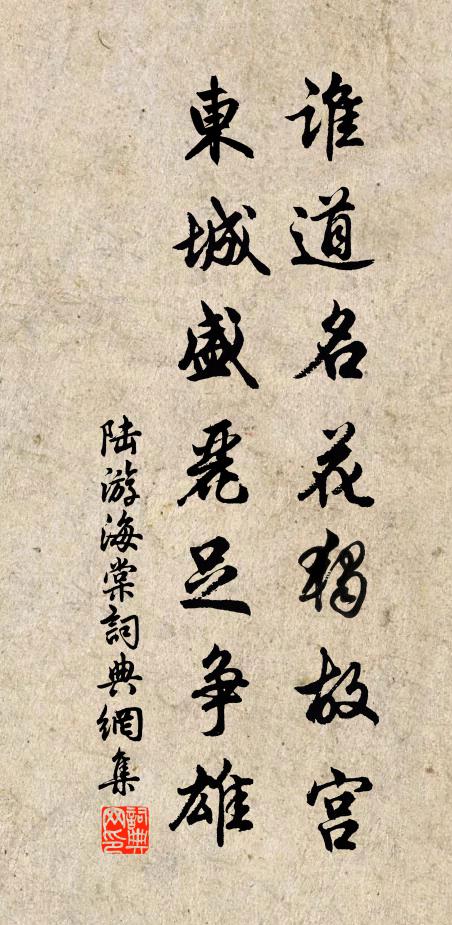 誰道名花獨故宮
東城盛麗足爭雄
陆游海棠詞典網集
詞典網印